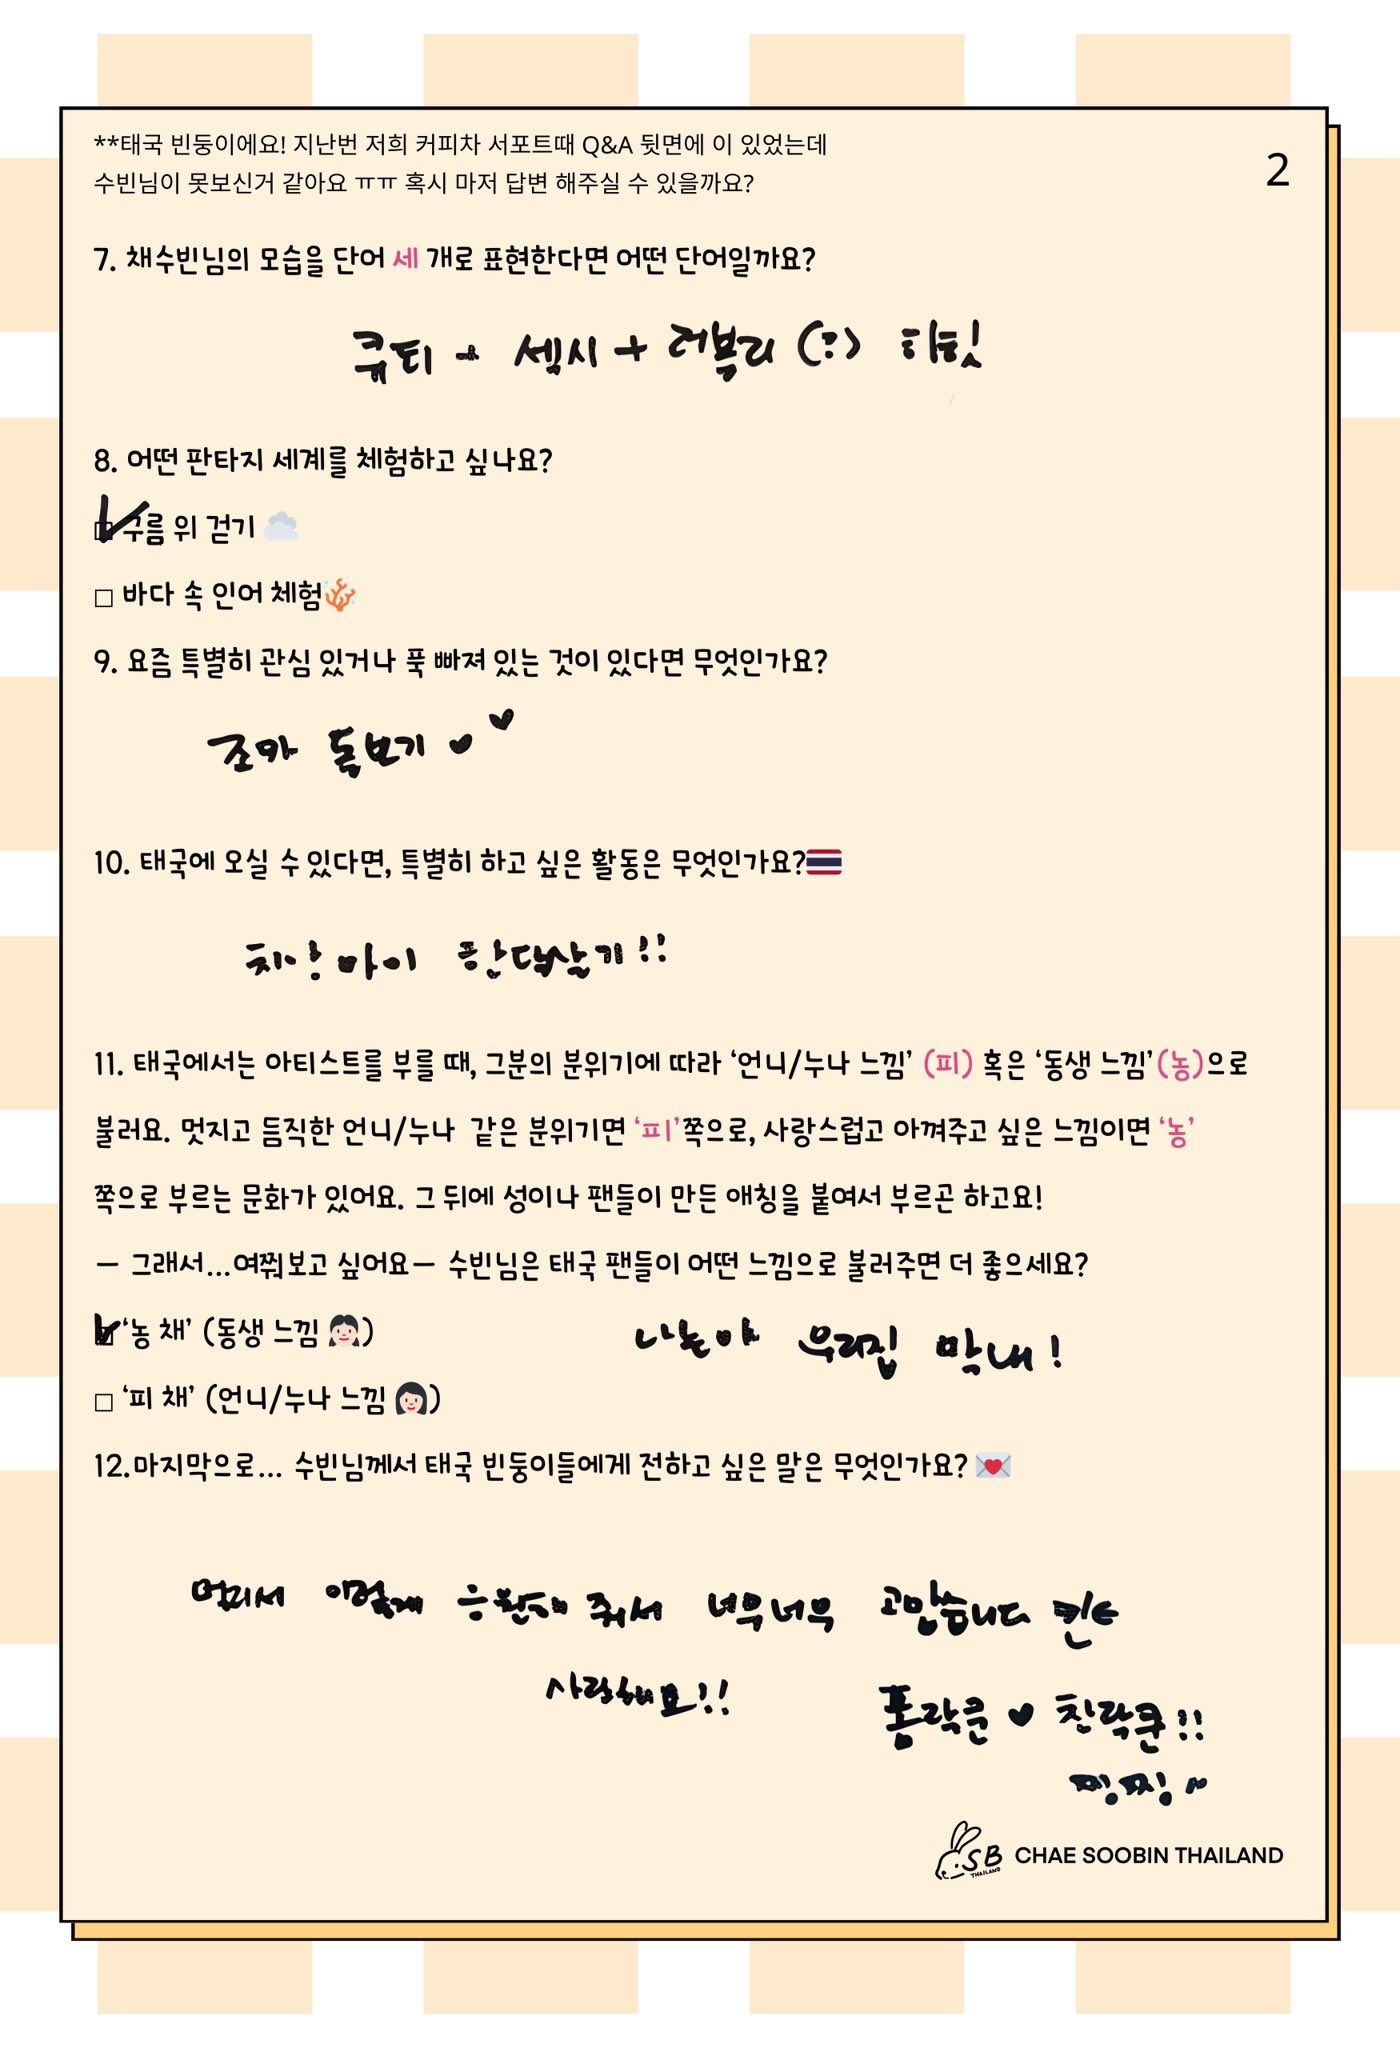 **태국 빈둥이에요! 지난번 저희 커피차 서포트때 Q&A 뒷면에 이 있었는데
수빈님이 못보신거 같아요 ㅠㅠ 혹시 마저 답변 해주실 수 있을까요?
2
7. 채수빈님의 모습을 단어 세 개로 표현한다면 어떤 단어일까요?
큐티 + 섹시 + 러블리 (?) 히힛
8. 어떤 판타지 세계를 체험하고 싶나요?
구름 위 걷기
바다 속 인어 체험
9. 요즘 특별히 관심 있거나 푹 빠져 있는 것이 있다면 무엇인가요?
조카 돌보기
10. 태국에 오실 수 있다면, 특별히 하고 싶은 활동은 무엇인가요?
치앙마이 한달살기!!
11. 태국에서는 아티스트를 부를 때, 그분의 분위기에 따라 ‘언니/누나 느낌’ (피) 혹은 ‘동생 느낌’(농)으로
불러요. 멋지고 듬직한 언니/누나 같은 분위기면 ‘피’쪽으로, 사랑스럽고 아껴주고 싶은 느낌이면 ‘농’
쪽으로 부르는 문화가 있어요. 그 뒤에 성이나 팬들이 만든 애칭을 붙여서 부르곤 하고요!
— 그래서...여쭤보고 싶어요— 수빈님은 태국 팬들이 어떤 느낌으로 불러주면 더 좋으세요?
‘농 채’ (동생 느낌 )
나는야 우리집 막내!
‘피 채’ (언니/누나 느낌 )
12.마지막으로... 수빈님께서 태국 빈둥이들에게 전하고 싶은 말은 무엇인가요?
멀리서 이렇게 응원해 줘서 너무너무 고맙습니다
사랑해요!!
폼락쿤 ♥ 찬락쿤!!
찡찡~
SB
THAILAND
CHAE SOOBIN THAILAND